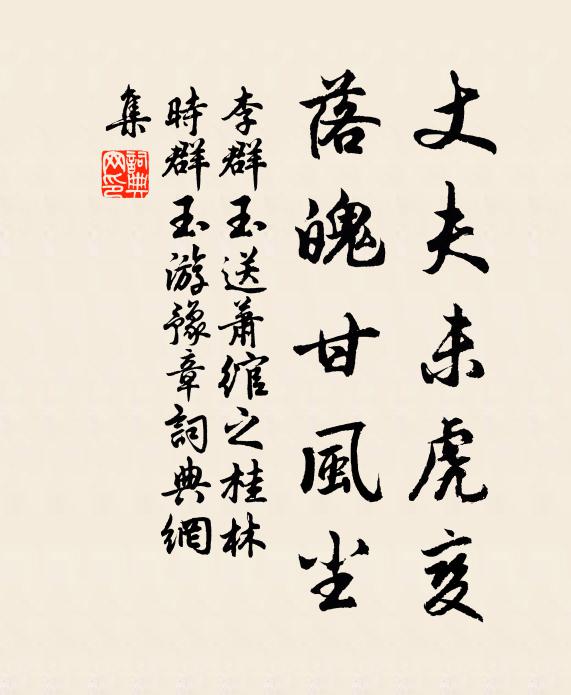 丈夫未虎变
落魄甘風尘
李群玉送萧绾之桂林
時群玉游豫章詞典網
集
詞典
网印